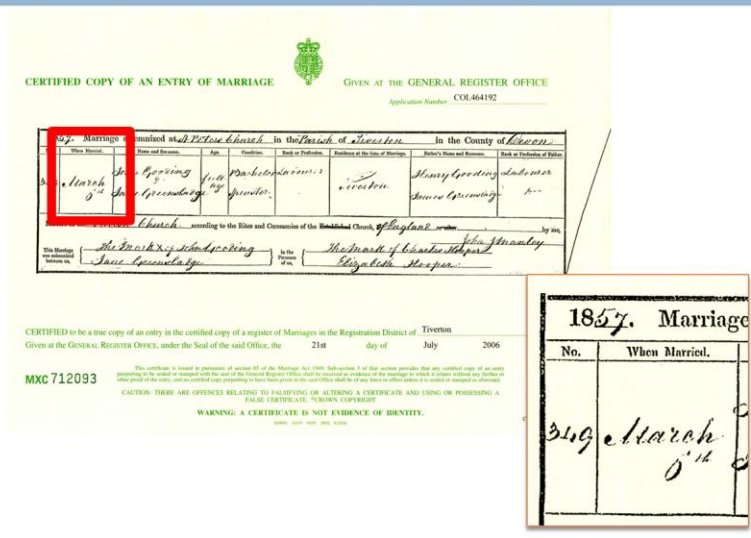 CERTIFIED COPY OF AN ENTRY OF MARRIAGE
GIVEN AT THE GENERAL REGISTER OFFICE
Application Number COL464192
57. Marriage solemnized at St Peters Church in the Parish of Tiverton in the County of Devon
When Married. Name and Surname. Age. Condition. Rank or Profession. Residence at the time of Marriage. Father's Name and Surname. Rank or Profession of Father.
March Gooding full age Bachelor Labourer Tiverton Henry Gooding Labourer
Jane Greenslade Spinster James Greenslade
Church according to the Rites and Ceremonies of the Established Church, of England by me,
John Manley
This Marriage was solemnized between us, The Mark X of Gooding In the Presence of us, The Mark of Charles Hooper
Jane Greenslade Elizabeth Hooper
CERTIFIED to be a true copy of an entry in the certified copy of a register of Marriages in the Registration District of Tiverton
Given at the GENERAL REGISTER OFFICE, under the Seal of the said Office, the 21st day of July 2006
MXC 712093
This certificate is issued in pursuance of section 65 of the Marriage Act 1949. Sub-section 3 of that section provides that any certified copy of an entry
purporting to be sealed or stamped with the seal of the General Register Office shall be received as evidence of the marriage to which it relates without any further or
other proof of the entry, and no certified copy purporting to have been given in the said Office shall be of any force or effect unless it is sealed or stamped as aforesaid.
CAUTION: THERE ARE OFFENCES RELATING TO FALSIFYING OR ALTERING A CERTIFICATE AND USING OR POSSESSING A
FALSE CERTIFICATE. ©CROWN COPYRIGHT
WARNING: A CERTIFICATE IS NOT EVIDENCE OF IDENTITY.
1857. Marriage
No. When Married.
349 March
th